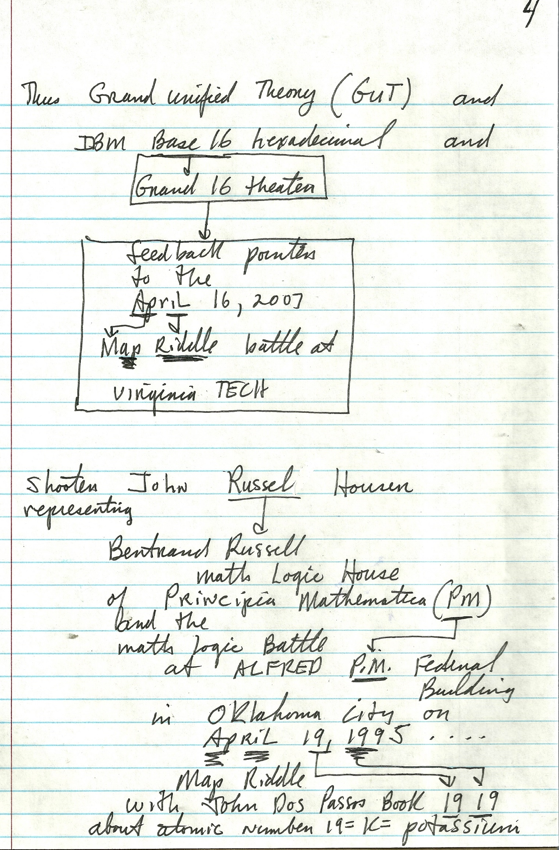 4
Thus Grand unified Theory (GUT) and
IBM Base 16 hexadecimal and
Grand 16 theater
feedback pointers
to the
April 16, 2007
Map Riddle battle at
virginia TECH
Shooter John Russel Houser
representing
Bertrand Russell
math Logic House
of Principia Mathematica (PM)
and the
math logic Battle
at ALFRED P.M. Federal
Building
in Oklahoma City on
April 19, 1995 ....
Map Riddle
with John Dos Passos Book 19 19
about atomic number 19= K= potassium